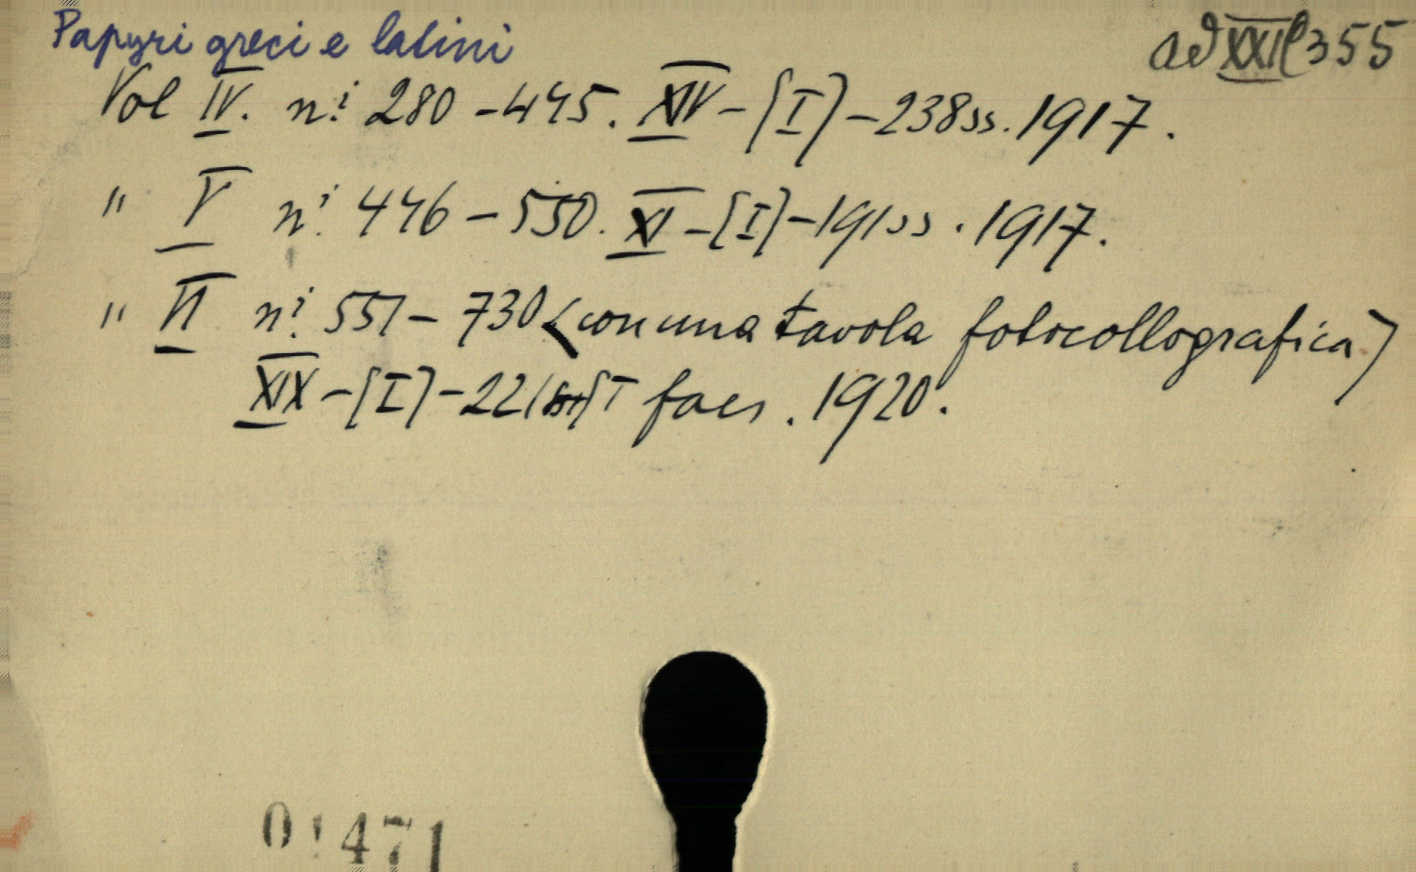 Papyri greci e latini
ad XXII C 355
Vol IV. ni 280 - 445. XIV - [I] - 238 ss. 1917.
" V ni 446 - 550. XI - [I] - 191 ss. 1917.
" VI ni 551 - 730 <con una tavola fotocollografica>
XIX - [I] - 221 facs. 1920.
01471